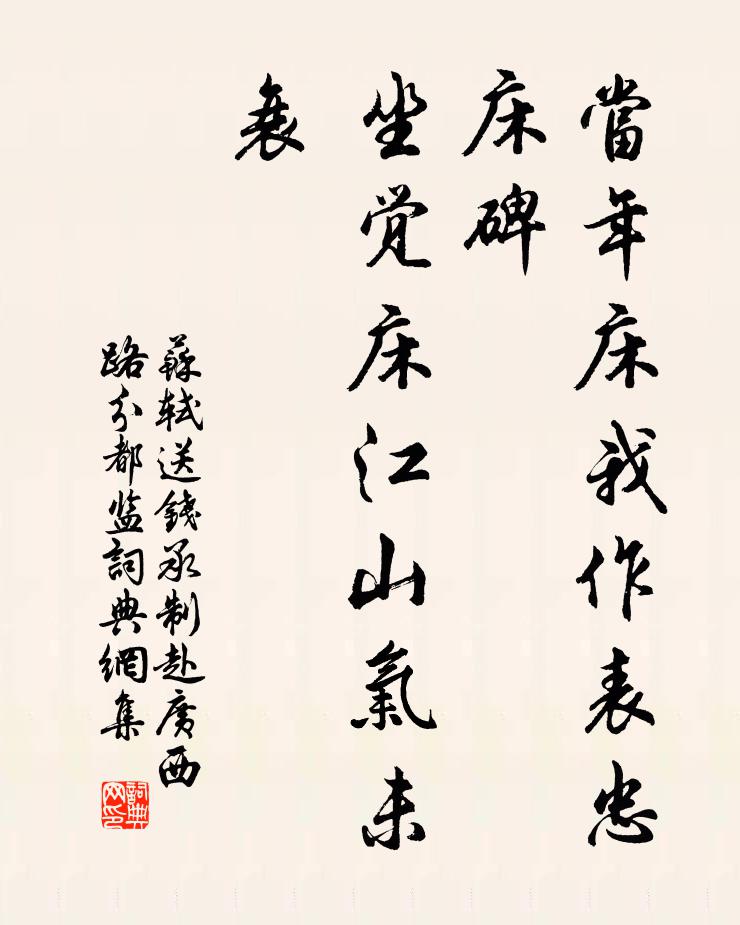 當年床我作表忠
床碑
坐覚床江山氣未
衰
蘇軾送錢承制赴廣西
路分都监詞典網集
詞典网印